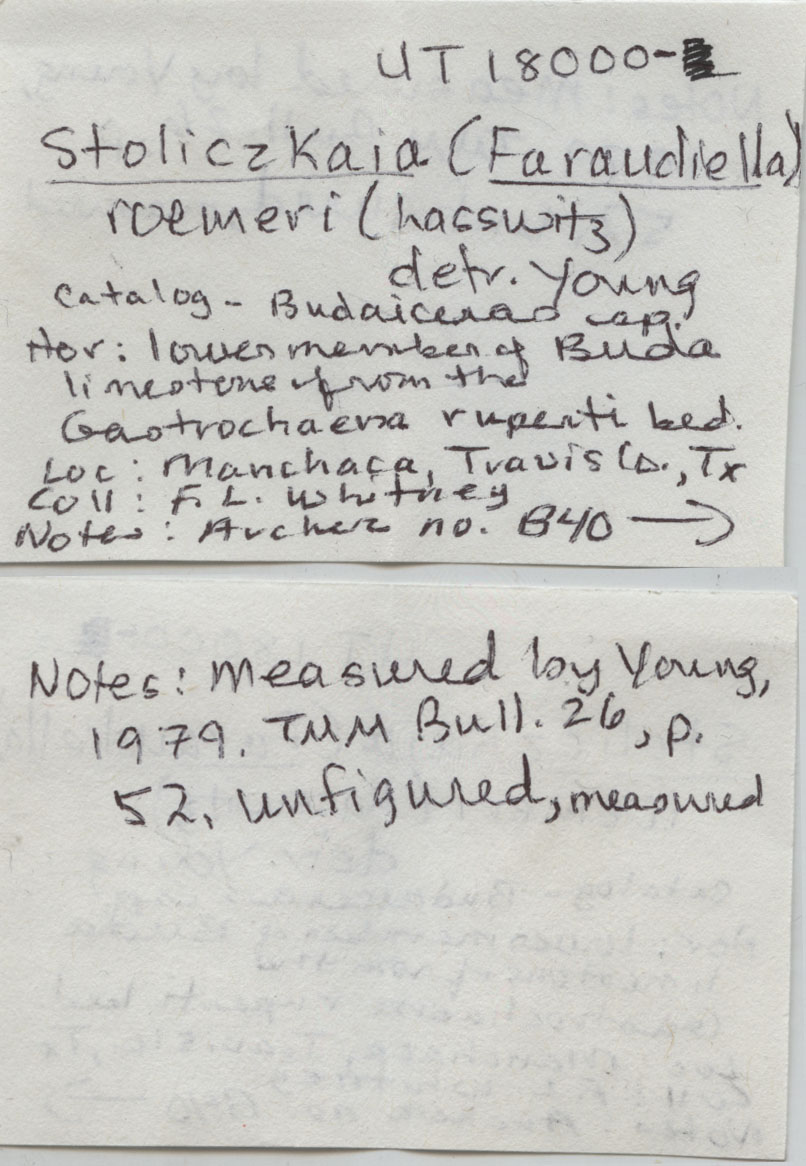 UT 18000-
Stoliczkaia (Faraudiella)
roemeri (hasswitz)
detr. Young
Catalog - Budaiceras sp.
Hor: lower member of Buda
limestone from the
Gastrochaena ruperti bed.
Loc: Manchaca, Travis Co., Tx
Coll: F. L. Whitney
Notes: Archer no. B40 →
Notes: measured by Young,
1979. TMM Bull. 26, p.
52. unfigured, measured